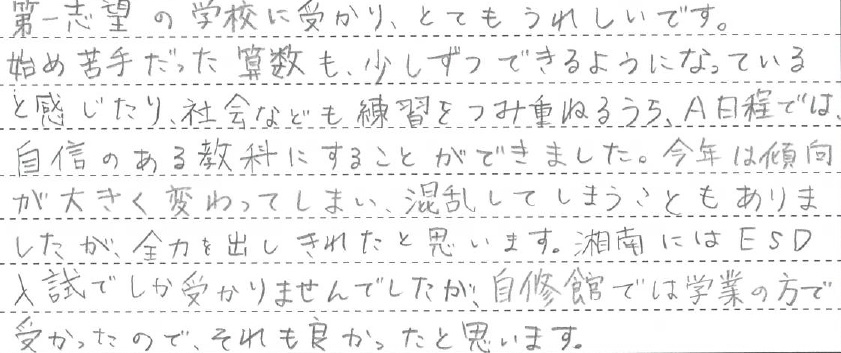 第一志望の学校に受かり、とてもうれしいです。
始め苦手だった算数も、少しずつできるようになっている
と感じたり、社会なども練習をつみ重ねるうち、A日程では、
自信のある教科にすることができました。今年は傾向
が大きく変わってしまい、混乱してしまうこともありま
したが、全力を出しきれたと思います。湘南にはESD
入試でしか受かりませんでしたが、自修館では学業の方で
受かったので、それも良かったと思います。